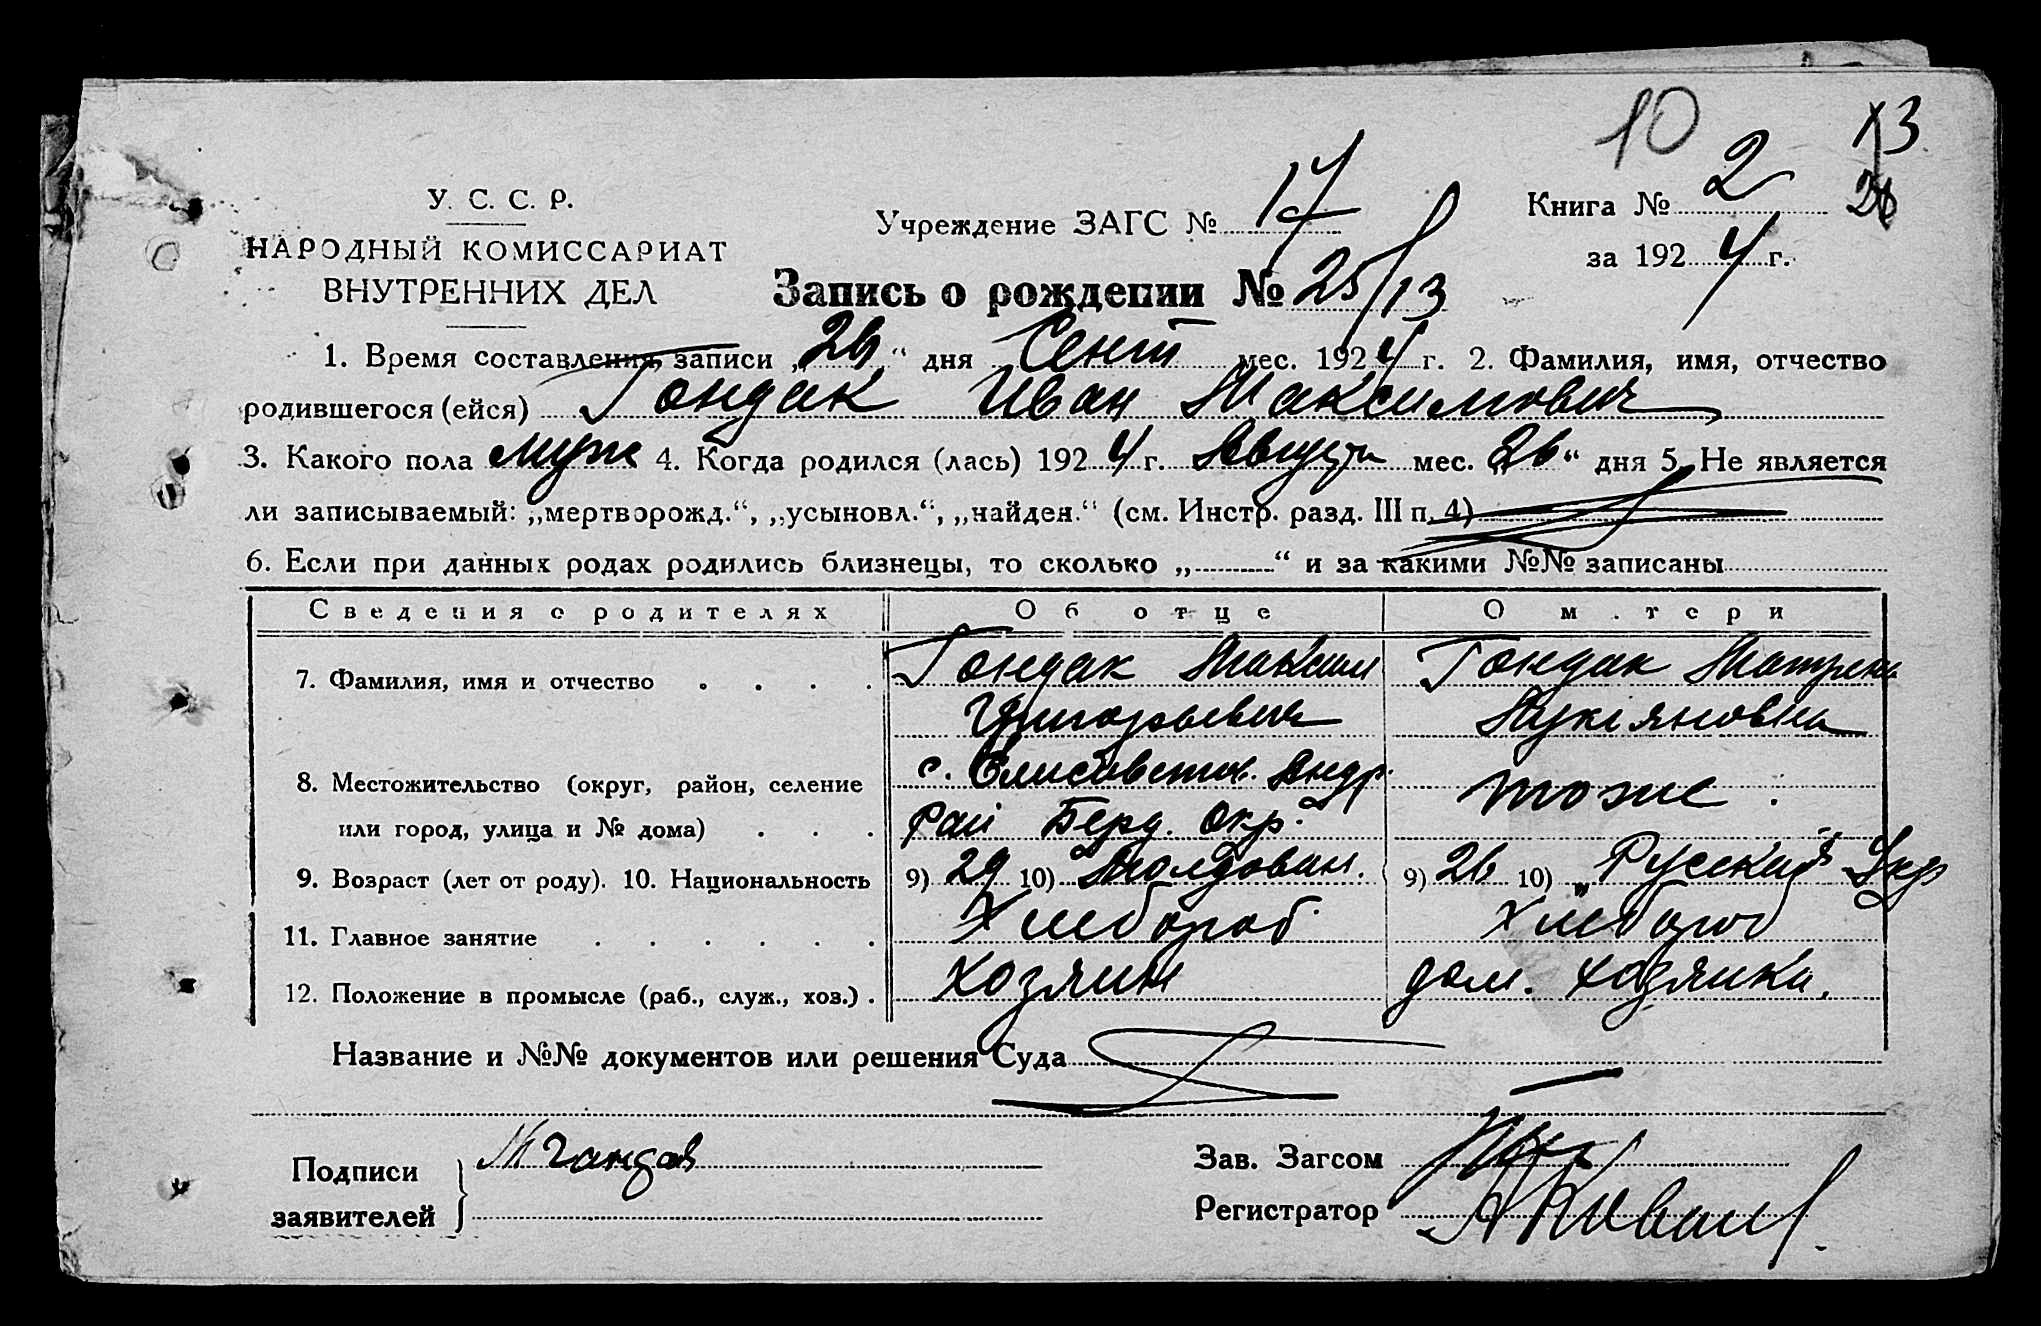 10 13
У. С. С. Р.
Учреждение ЗАГС № 17
Книга № 2
26
НАРОДНЫЙ КОМИССАРИАТ
за 1924 г.
ВНУТРЕННИХ ДЕЛ
Запись о рождении № 25/13
1. Время составления записи „26“ дня Сент мес. 1924 г. 2. Фамилия, имя, отчество
родившегося (ейся) Гондак Иван Максимович
3. Какого пола муж 4. Когда родился (лась) 1924 г. Августа мес. 26“ дня 5. Не является
ли записываемый: „мертворожд.“, „усыновл.“, „найден.“ (см. Инстр. разд. III п. 4)
6. Если при данных родах родились близнецы, то сколько „ “ и за какими №№ записаны
Сведения о родителях Об отце О м.тери
7. Фамилия, имя и отчество Гондак Максим Гондак Матрена
Григорьевич Лукіяновна
8. Местожительство (округ, район, селение с. Елисаветов. Андр. тоже.
или город, улица и № дома) рай Берд. Окр.
9. Возраст (лет от роду). 10. Национальность 9) 29 10) Молдован. 9) 26 10) „Русская“ Укр
11. Главное занятие Хлебороб Хлебороб
12. Положение в промысле (раб., служ., хоз.) хозяин дом. хозяйка.
Название и №№ документов или решения Суда
Подписи
заявителей
М Гондак
Зав. Загсом
Регистратор